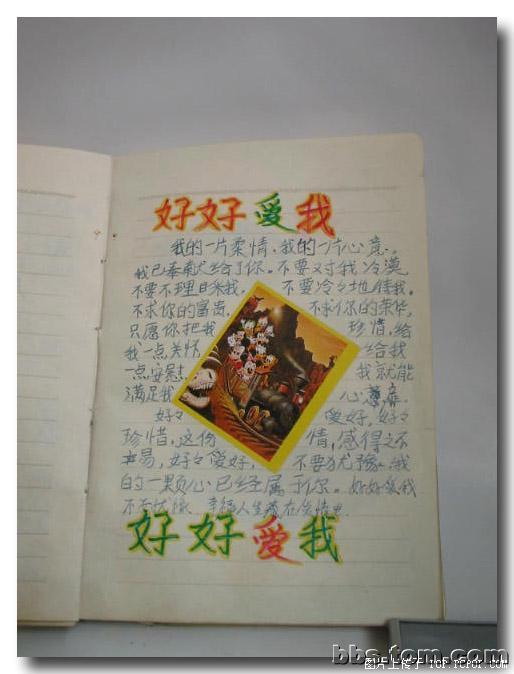 好好爱我
我的一片柔情、我的一片心意。
我已奉献给了你。不要对我冷漠
不要不理目来我, 不要冷々地待我。
不求你的富贵, 不求你的荣华,
只愿你把我 珍惜,给
我一点关怀 给我
一点安慰 我就能
满足我 心意
好々 爱好,好々
珍惜,这份 情,感得之不
易,好々爱好, 不要犹予,我
的一颗心已经属于你。好好爱我
不要犹豫 幸福人生
好好爱我
bbs.tom.com
图片上传于 TOF.TOFOF.COM